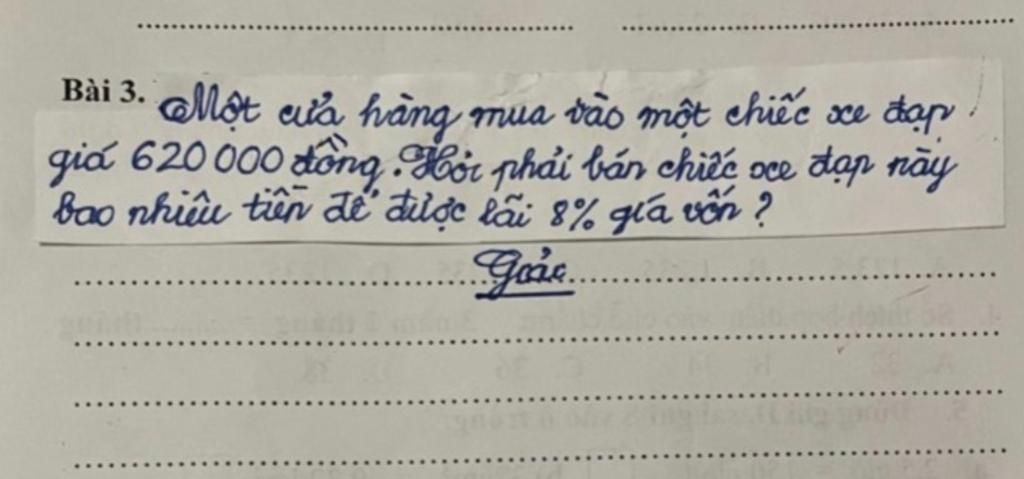 Bài 3. Một cửa hàng mua vào một chiếc xe đạp
giá 620 000 đồng. Hỏi phải bán chiếc xe đạp này
bao nhiêu tiền để được lãi 8% gía vốn ?
Giải